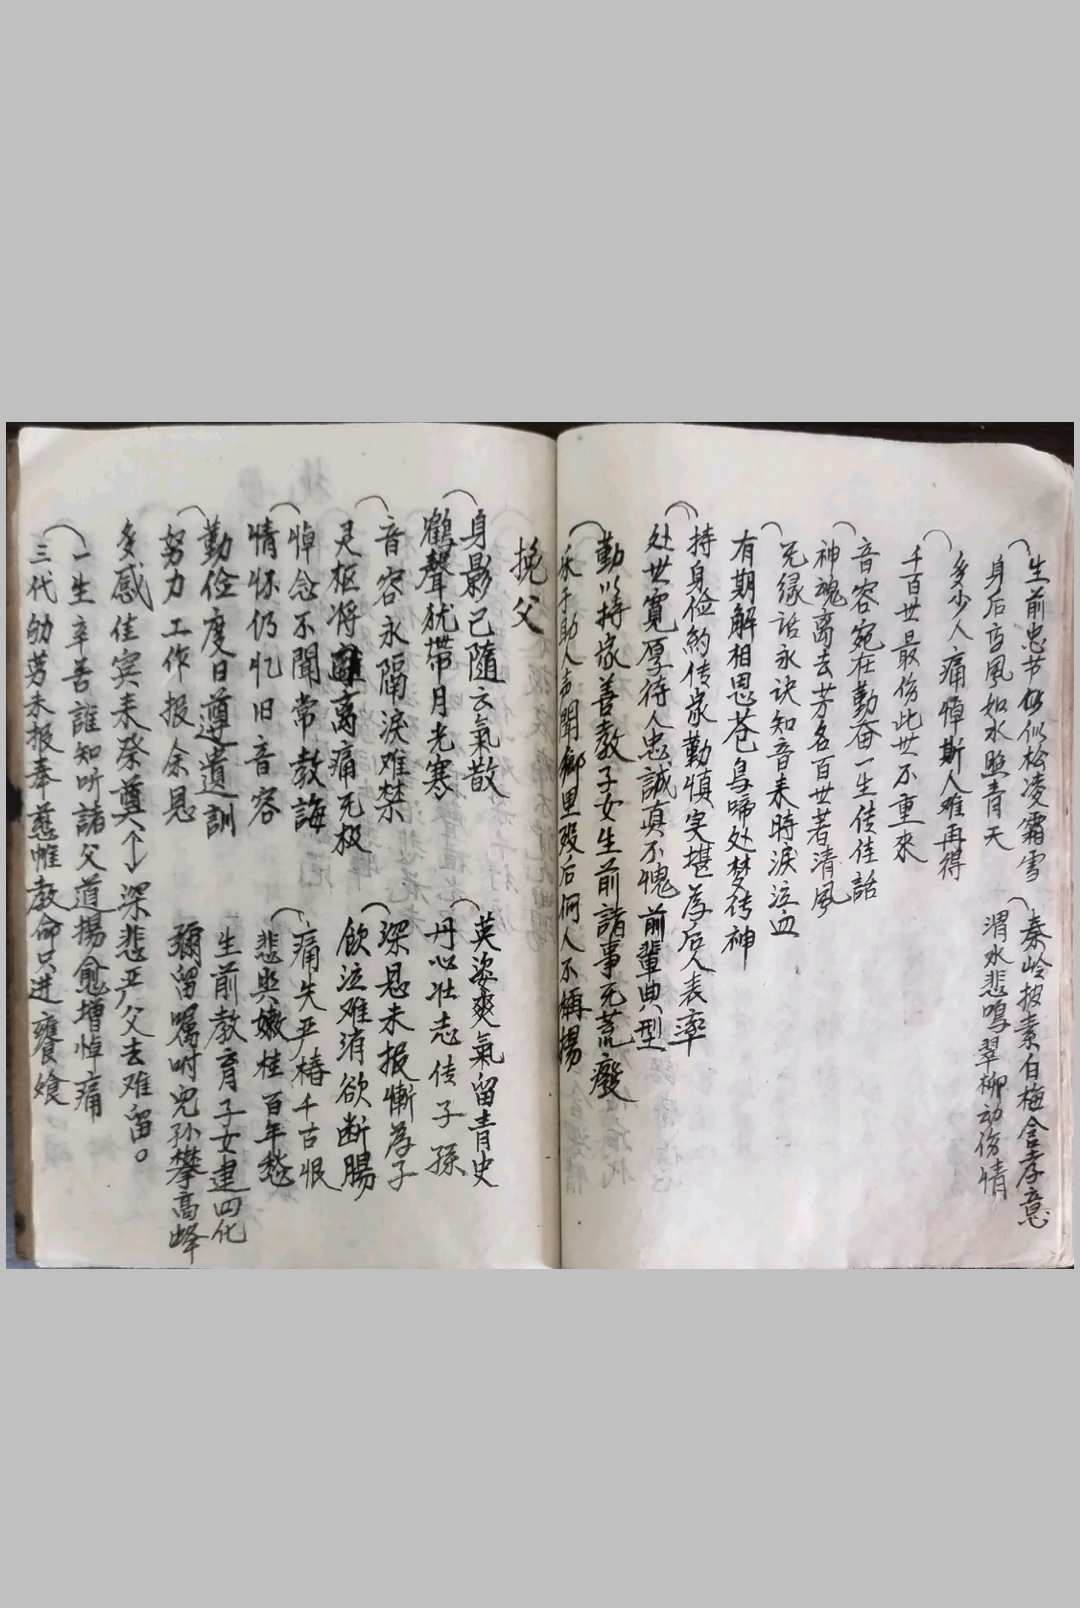 生前忠节似松凌霜雪
身后高風如水照青天
秦岭披素白梅含孝意
渭水悲鳴翠柳动伤情
多少人痛悼斯人难再得
千百世最伤此世不重來
音容宛在勤奋一生传佳話
神魂离去芳名百世著清風
无缘話永诀知音来時淚泣血
有期解相思苍鳥啼处梦传神
持身俭約传家勤慎实堪为后人表率
处世寬厚待人忠誠真不愧前輩典型
勤以持家善教子女生前諸事无荒廢
乐于助人声聞鄉里殁后何人不稱揚
挽父
身影已隨云氣散
鶴聲犹帶月光寒
英姿爽氣留青史
丹心壮志传子孫
音容永隔淚难禁
灵枢将离痛无极
深恩未报慚为子
飲泣难消欲断腸
悼念不聞常教誨
情怀仍忆旧音容
痛失严椿千古恨
悲興嫩桂百年愁
勤俭度日遵遺訓
努力工作报余恩
生前教育子女建四化
彌留囑咐児孙攀高峰
多感佳宾来祭奠↑↓深悲严父去难留。
一生辛苦誰知听諸父道揚愈增悼痛
三代劬劳未报奉慈帷教命只进饔飧